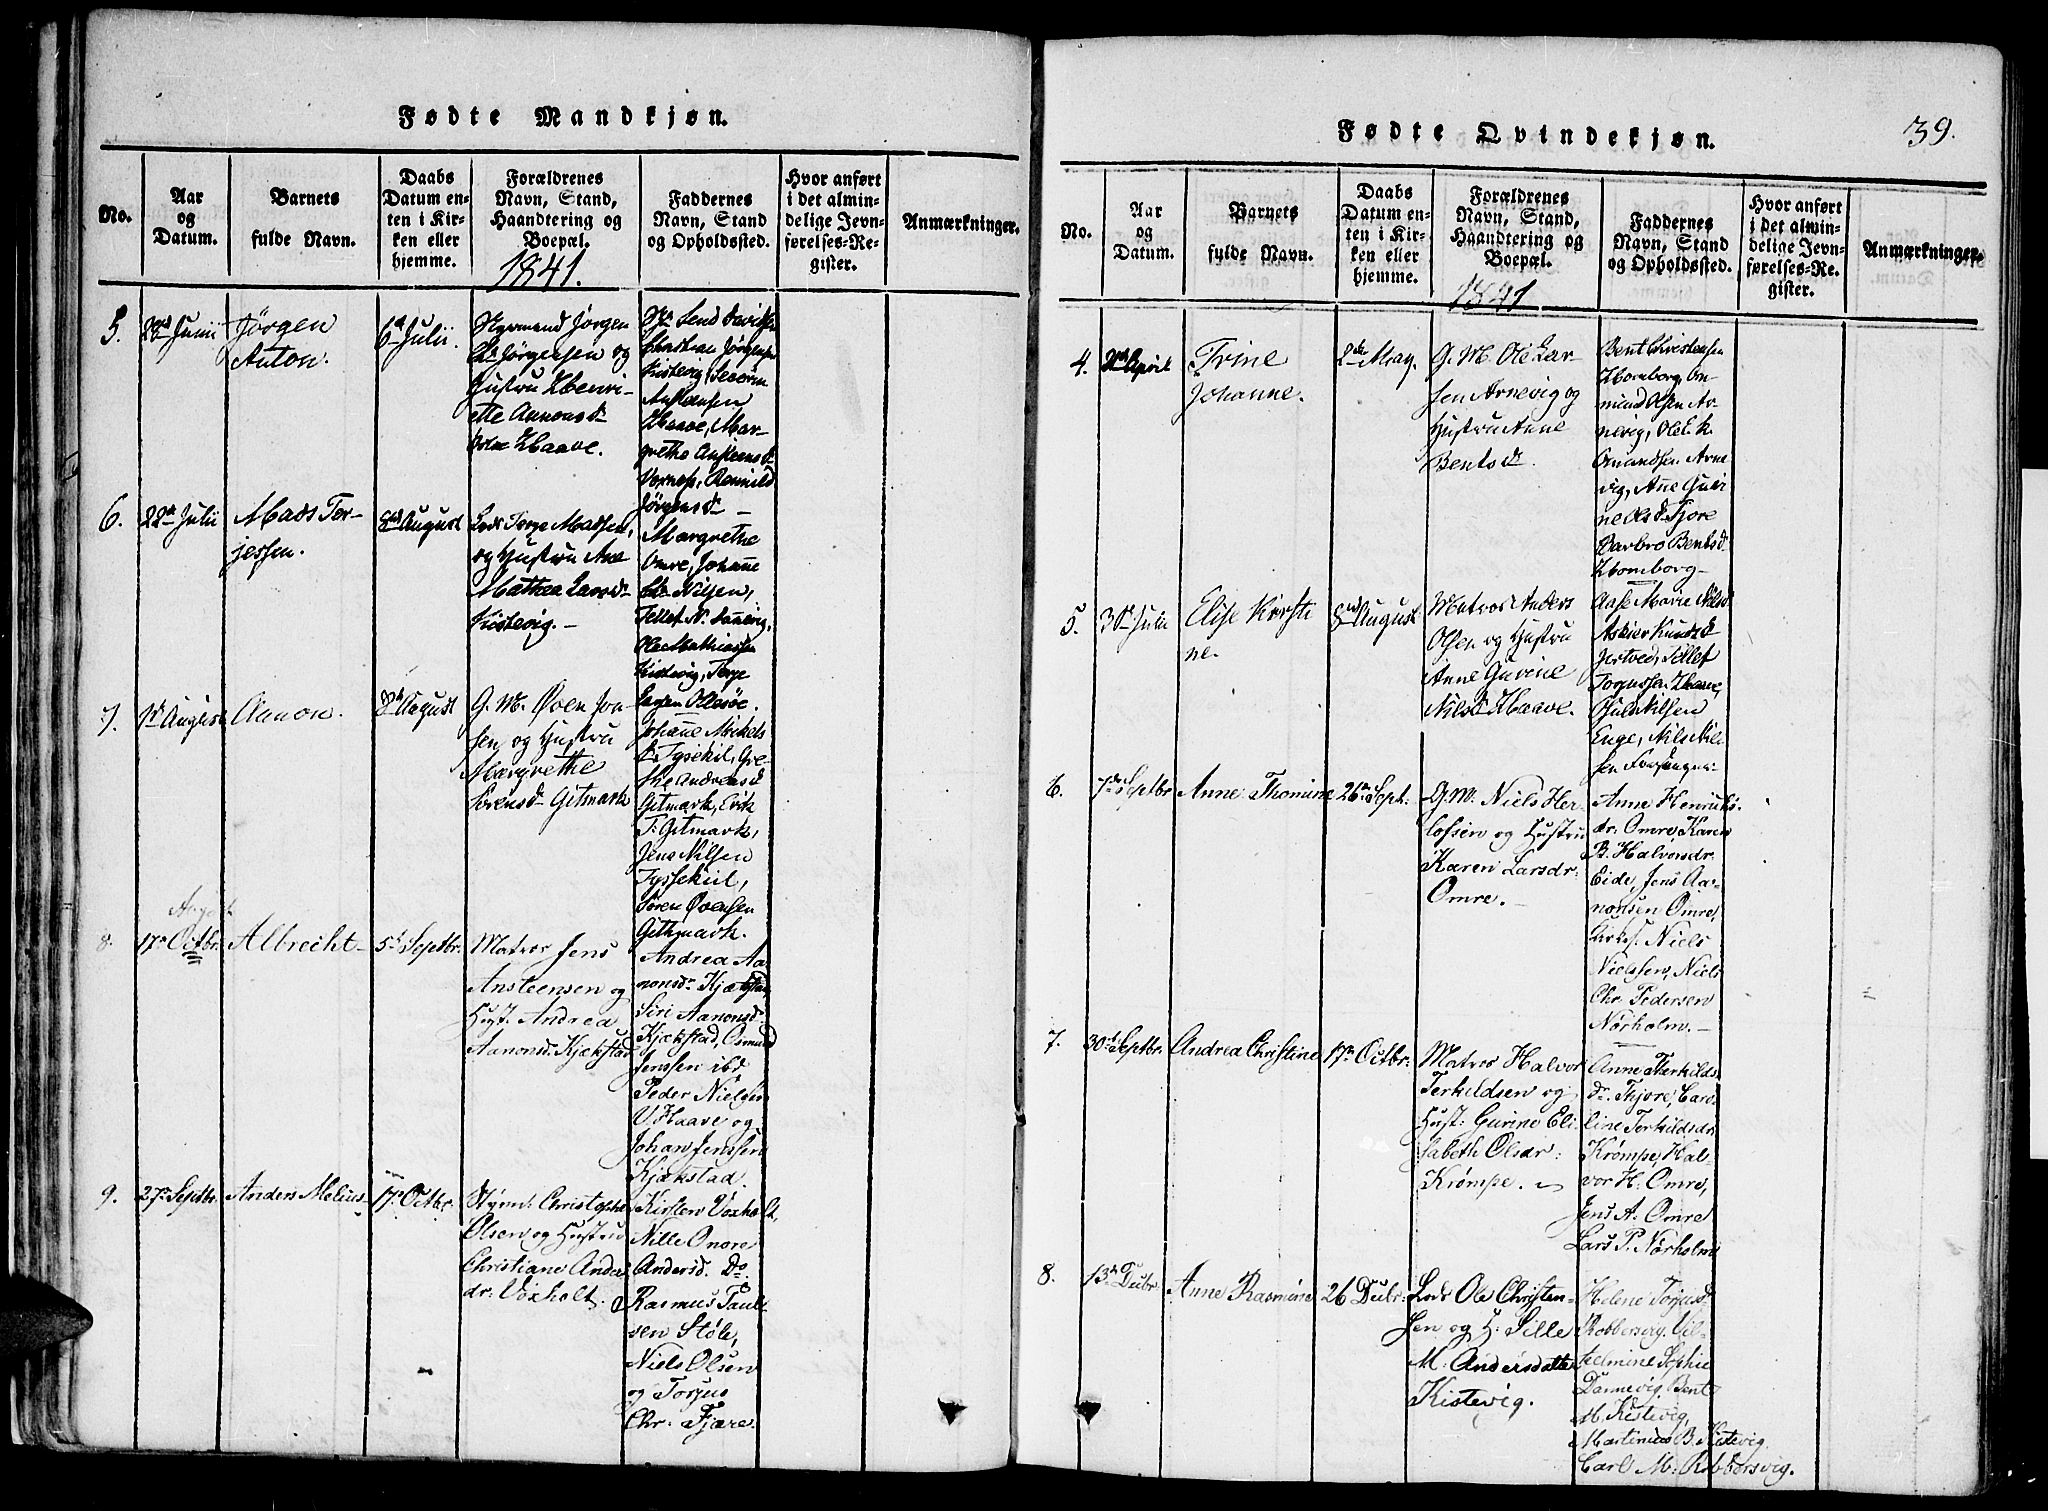 Fødte Mandkjøn.
No.
Aar
og
Datum.
Barnets
fulde Navn.
Daabs
Datum en-
ten i Kir-
ken eller
hjemme.
Forældrenes
Navn, Stand,
Haandtering og
Boepæl.
1841.
Faddernes
Navn, Stand
og Opholdssted.
Hvor anført
i det almin-
delige Jevn-
førelses-Re-
gister.
Anmærkninger.
5.
Junii
Jörgen
Anton.
6te Julii.
Jörgen
Jörgensen og
Hustru Henri-
ette Aanons d.
Haave.
Christian Jörgensen
Kistevig, Severin
Anstensen
Haave, Mar-
grethe Anstens d.
Jörgens d.
6.
22de Julii
Mads Ter-
jessen.
8de August
Lods Terje Madsen,
og Hustru Ane
Mathea Lars d.
Kistevig.
Margrethe
Omre, Johañe
Nilsen,
Ole Mathiassen
Kistevig, Terje
7.
1ste August
Aanon.
8de August
G. M. Øven Jon-
sen og Hustru
Margrethe
Sörens d. Gitmark
Johañe Mickels
d. Tysekil, Gre-
the Andreas d.
Gitmark, Erik
T. Gitmark,
Jens Nilsen
Tyssekiil,
Sören Øvensen
Gitmark.
8.
August
17de Octbr.
Albrecht
5te Septbr.
Matros Jens
Ansteensen og
Hust. Andrea
Aanonsd. Kjækstad
Andrea Aa-
nonsdr. Kjækstad,
Siri Aanonsd.
Kjækstad, Osmund
Jenssen ibd
Peder Nielsen
V. Haave og
Johan Jenssen
Kjækstad.
9.
27de Septbr.
Anders Melius
17de Octbr.
Styrm: Christopher
Olsen og Hustru
Christiane Anders
dr: Voxholt.
Kirsten Voxholt,
Nille Omre
Andersd. Do
Rasmus Paul-
sen Støle,
Niels Olsen
og Torjus
Chr. Fjære.
39.
Fødte Qvindekjøn.
No.
Aar
og
Datum.
Barnets
fulde Navn.
Daabs
Datum en-
ten i Kir-
ken eller
hjemme.
Forældrenes
Navn, Stand,
Haandtering og
Boepæl.
1841
Faddernes
Navn, Stand
og Opholdssted.
Hvor anført
i det almin-
delige Jevn-
førelses-Re-
gister.
Anmærkninger.
4.
April
Trine
Johanne.
2den May.
G. M. Ole Lar-
sen Arnevig og
Hustru Anne
Bents d.
Bent Christensen
Homborg, Om-
mund Olsen Ar-
nevig, Ole L. k.
Omundsen Arne
vig, Añe Guri-
ne Ols d. Fjore
Barbro Bents d.
Homborg
5.
3die Julii
Elise Kirsti
ne.
8de August
Matros Anders
Olsen og Hustru
Anne Gurine
Nils d. Haave.
Aase Marie Nils d.
Knuds d.
Tellef
Torjussen Haave,
Nilsen
Enge, Nils Nil-
sen
6.
7de Septbr
Anne Thomine
26de Sept:
G. M. Niels Her-
lofsen og Hustru
Karen Larsdr:
Omre.
Anne Henriks-
dr. Omre, Karen
B. Halvorsdr.
Eide, Jens Aa-
nonsen Omre,
Niels
Nielssen, Niels
Chr. Pedersen
Nörholm.
7.
30te Septbr.
Andrea Christine
17de Octbr.
Matros Halvor
Terkeldsen og
Hust: Gurine Eli
sabeth Olsdr:
Krömpe.
Anne Therkilds
dr. Thjore, Caro-
line Terkildsdr.
Krömpe, Hal-
vor H. Omre,
Jens A. Omre
Lars P. Nörholm
8.
13de Dcbr.
Anne Rasmine
26 Dcbr:
Lods Ole Christen-
sen og H. Sille
M. Andersdatter
Kistevig.
Helene Torjusd
Robbersvig, Vil-
helmine Sophie
Dannevig, Bent
M. Kistevig,
Martinius B. Kistevig
Carl M. Robbersvig.